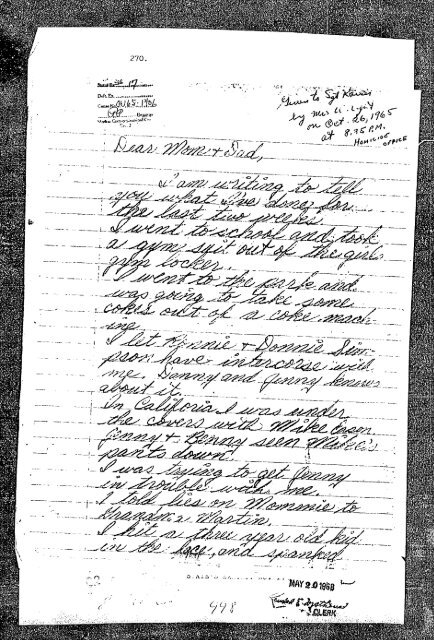 270.
17
CR65-1906
Given to Sgt Kaiser
by Mrs
on Oct. 26, 1965
at 8.25 P.M.
HOMICIDE OFFICE
Dear Mom + Dad,
I am writing to tell
you what I've done for
the last two weeks.
I went to school and took
a gym suit out of the girls
gym locker.
I went to the park and
was going to take some
cokes out of a coke mach-
ine
I let Ronnie + Donnie Sim-
pson have intercorse with
me. Danny and Jenny knows
about it.
In Califoria I was under
the covers with Mike
Jenny + Benny seen Mike's
pants down.
I was trying to get Jenny
in trouble with me.
I told lies on Mommie to
Grandma Martin.
I hit a three year old kid
in the face, and spanked
MAY 20 1966
CLERK
498